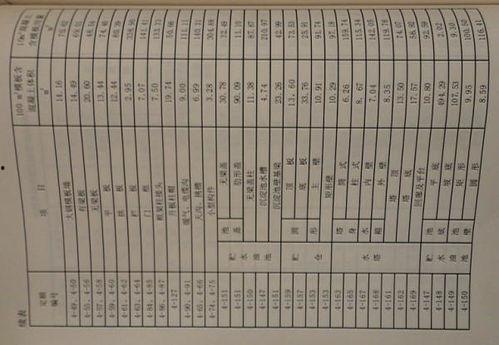 续表
定额编号 项目 100 m² 模板含混凝土体积 10m³混凝土含模板用量
4-49、4-50 大钢模板墙 14.16
4-55、4-56 有梁板 14.49 69.01
4-57、4-58 无梁板 20.60 48.54
4-59、4-60 平板 13.44 74.40
4-61、4-62 拱板 12.44 80.39
4-63、4-64 栏板 2.95 338.98
4-84、4-85 门框 7.07 141.41
4-86、4-87 框架柱接头 7.50 133.33
4-127 升板柱帽 19.74 50.66
4-90、4-91 暖气、电缆沟 9.00 111.11
4-65、4-66 天沟、挑檐 6.99
4-74、4-75 小型构件 3.28 304.88
4-151 池盖 无梁盖 30.78 32.49
4-151 肋形盖 90.09 11.10
4-150 贮水油池 无梁盖柱 11.38 87.87
4-147 沉淀池水槽 4.74 210.97
4-151 沉淀池壁基梁 23.26 42.99
4-159 贮仓 圆形 顶板 13.60 73.53
4-157 底板 33.76
4-153 主壁 10.91 91.74
4-153 矩形壁 10.29 97.18
4-163 水塔 塔身 筒式 6.26 159.74
4-165 柱式 8.67 115.34
4-167 水箱 内壁 7.04 142.05
4-168 外壁 8.35 119.76
4-161 塔顶 13.50 74.07
4-162 塔底 17.57 56.92
4-169 回廊及平台 10.80 92.59
4-147 贮水油池 池底 平底 494.29 2.02
4-148 坡底 107.53 9.30
4-149 池壁 矩形 9.95 100.50
4-150 圆形 8.59 116.41